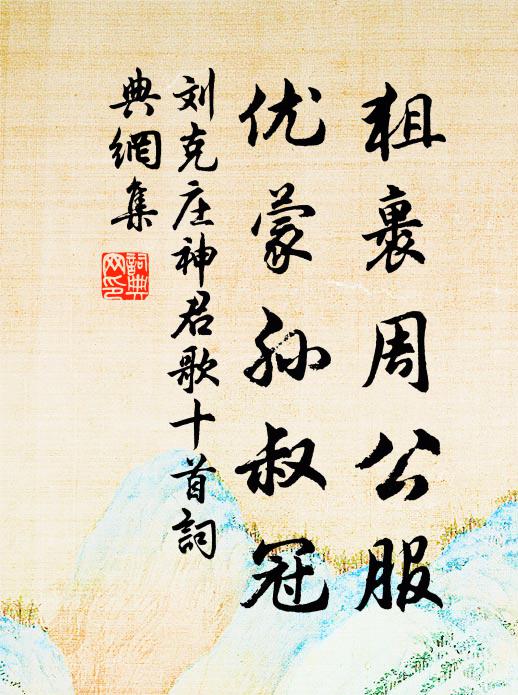 狙裹周公服
优蒙孙叔冠
刘克庄神君歌十首詞
典網集
詞典网印